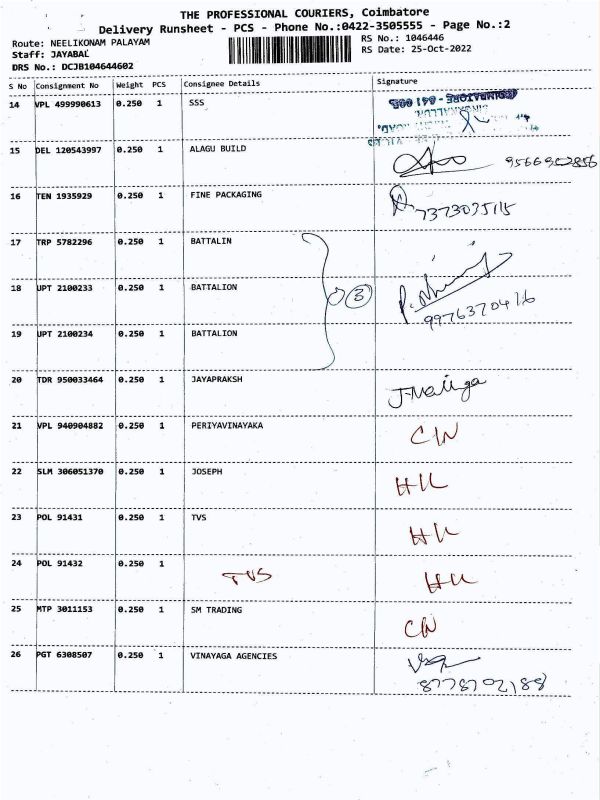 THE PROFESSIONAL COURIERS, Coimbatore
Delivery Runsheet - PCS - Phone No.:0422-3505555 - Page No.:2
Route: NEELIKONAM PALAYAM
RS No.: 1046446
Staff: JAYABAL
RS Date: 25-Oct-2022
DRS No.: DCJB104644602
S No Consignment No Weight PCS Consignee Details Signature
14 VPL 499990613 0.250 1 SSS COIMBATORE - 641 005
15 DEL 120543997 0.250 1 ALAGU BUILD
16 TEN 1935929 0.250 1 FINE PACKAGING 7373035115
17 TRP 5782296 0.250 1 BATTALIN
18 UPT 2100233 0.250 1 BATTALION 3 9976370416
19 UPT 2100234 0.250 1 BATTALION
20 TDR 950033464 0.250 1 JAYAPRAKSH
21 VPL 940904882 0.250 1 PERIYAVINAYAKA CIN
22 SLM 306051370 0.250 1 JOSEPH
23 POL 91431 0.250 1 TVS
24 POL 91432 0.250 1 TVS
25 MTP 3011153 0.250 1 SM TRADING CIN
26 PGT 6308507 0.250 1 VINAYAGA AGENCIES